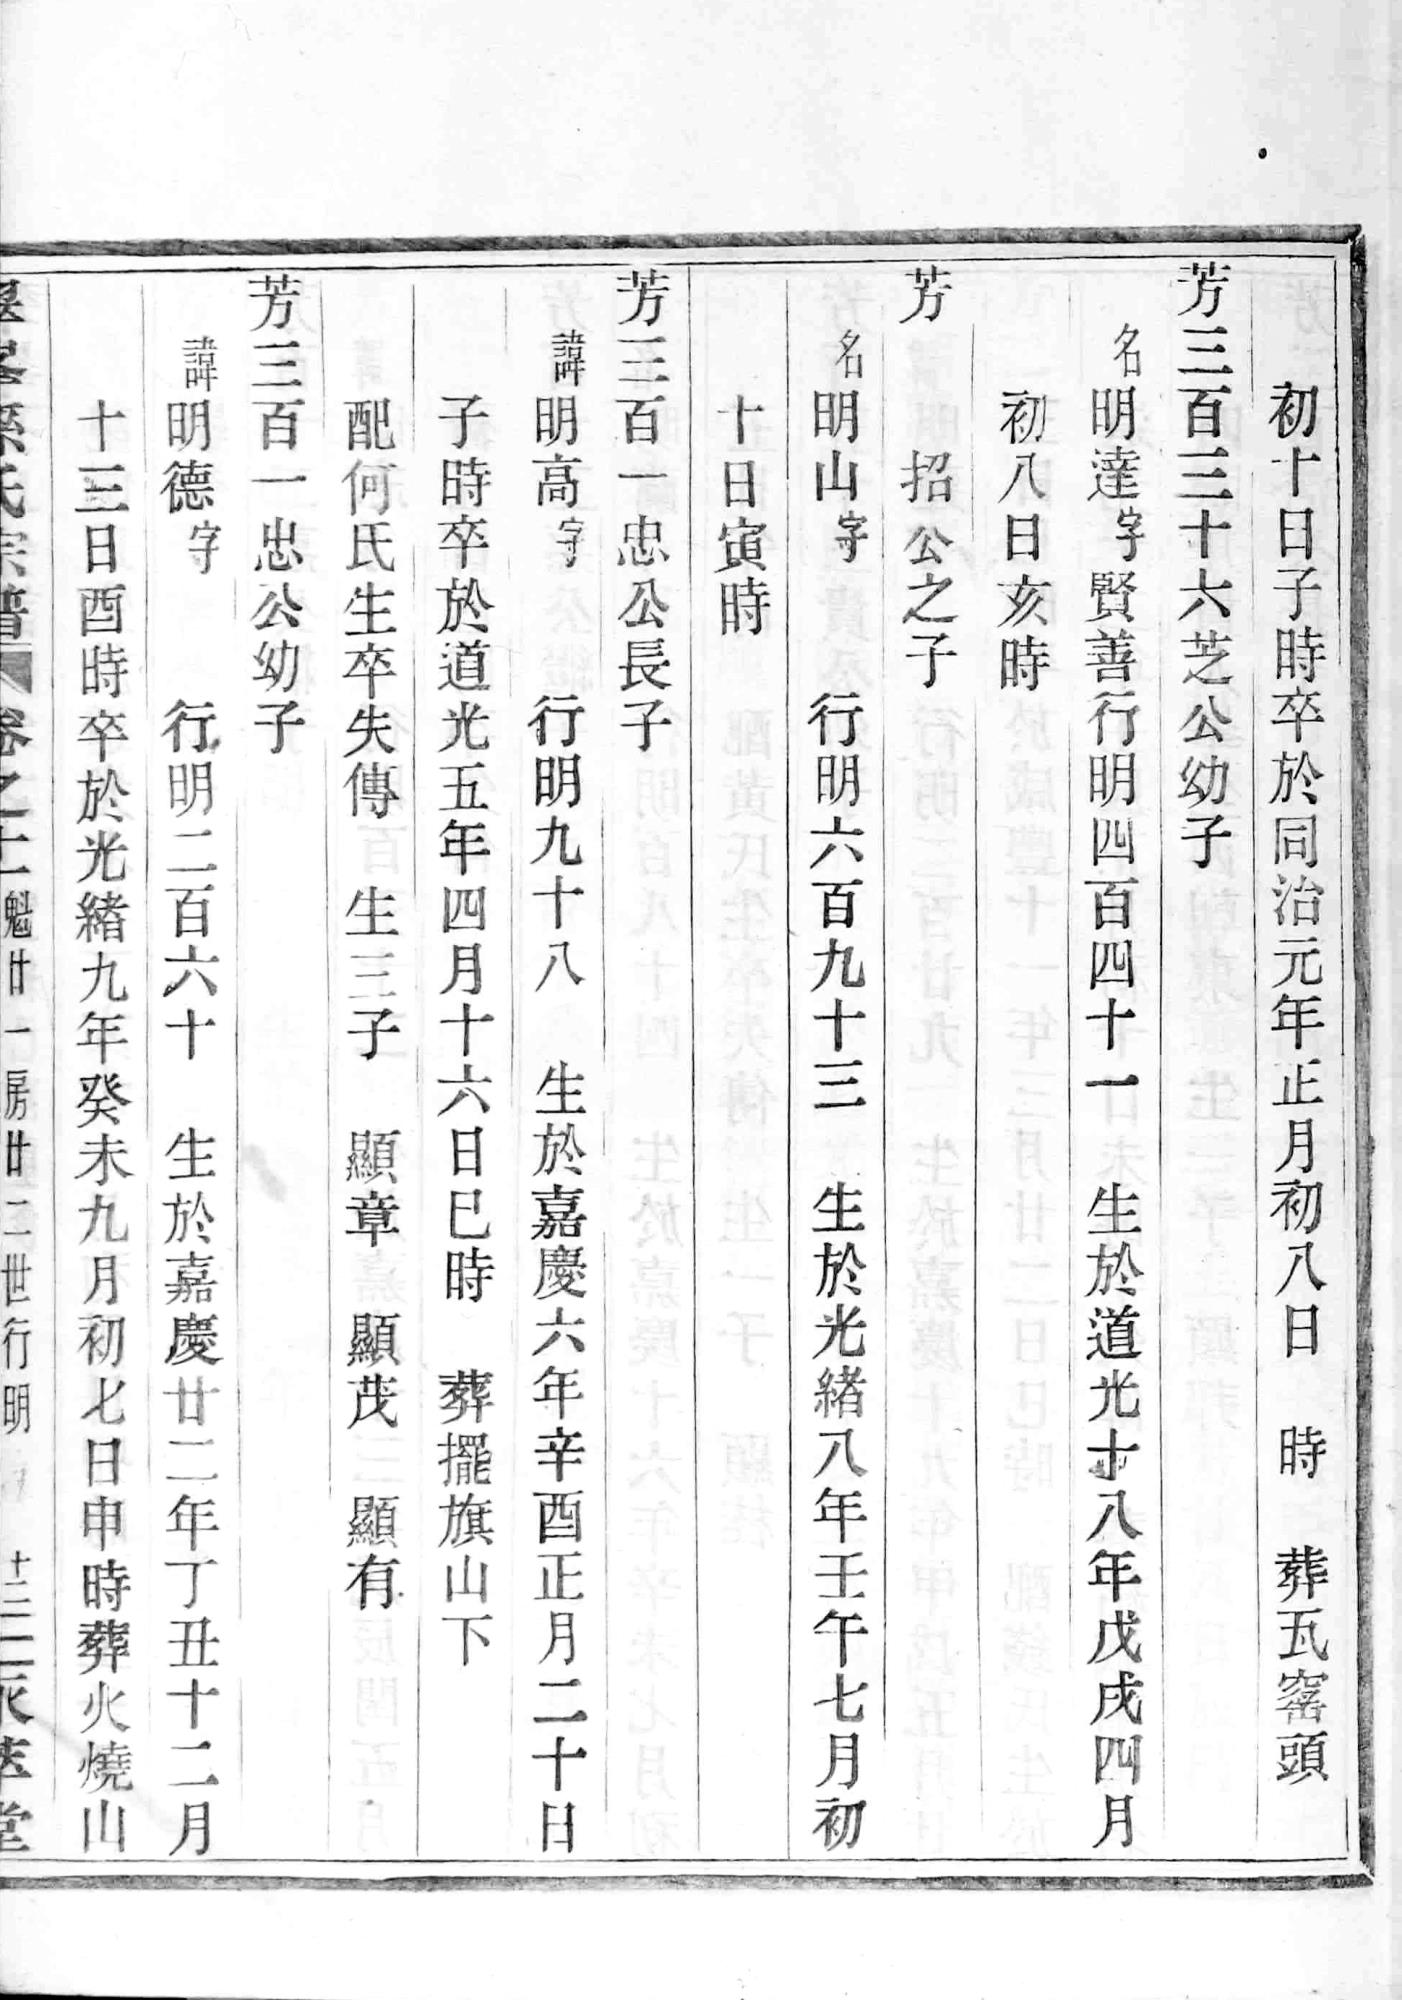 初十日子時卒於同治元年正月初八日 時 葬瓦窰頭
芳三百三十六芝公幼子
名明達字賢善行明四百四十一 生於道光十八年戊戌四月
初八日亥時
芳 招公之子
名明山字 行明六百九十三 生於光緒八年壬午七月初
十日寅時
芳三百一忠公長子
諱明高字 行明九十八 生於嘉慶六年辛酉正月二十日
子時卒於道光五年四月十六日巳時 葬擺旗山下
配何氏生卒失傳 生三子 顯章 顯茂 顯有
芳三百一忠公幼子
諱明德字 行明二百六十 生於嘉慶廿二年丁丑十二月
十三日酉時卒於光緒九年癸未九月初七日申時葬火燒山
孫氏宗譜 卷之十一 魁廿一房廿二世行明 十二 堂